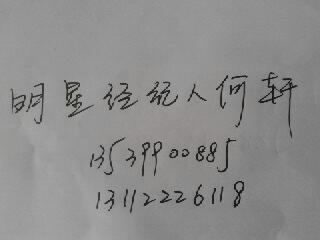 明星经纪人何轩
13539900885
13112226118